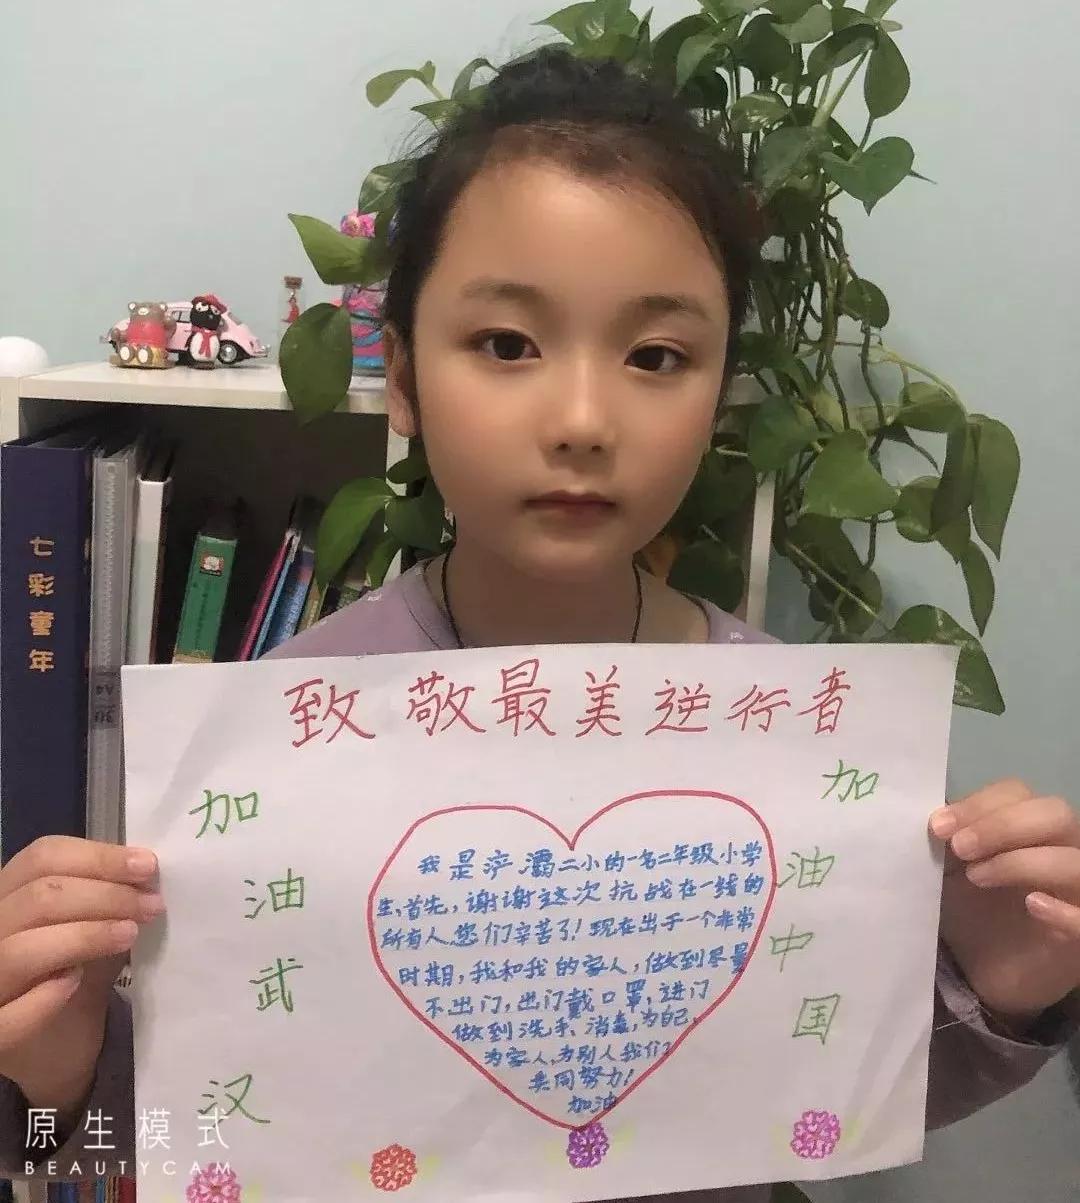 致敬最美逆行者
加油武汉
加油中国
我是浐灞二小的一名二年级小学
生,首先,谢谢这次抗战在一线的
所有人,您们辛苦了!现在出于一个非常
时期,我和我的家人,做到尽量
不出门,出门戴口罩,进门
做到洗手、消毒,为自己,
为家人,为别人我们
共同努力!
加油
七彩童年
A4
原生模式
BEAUTYCAM